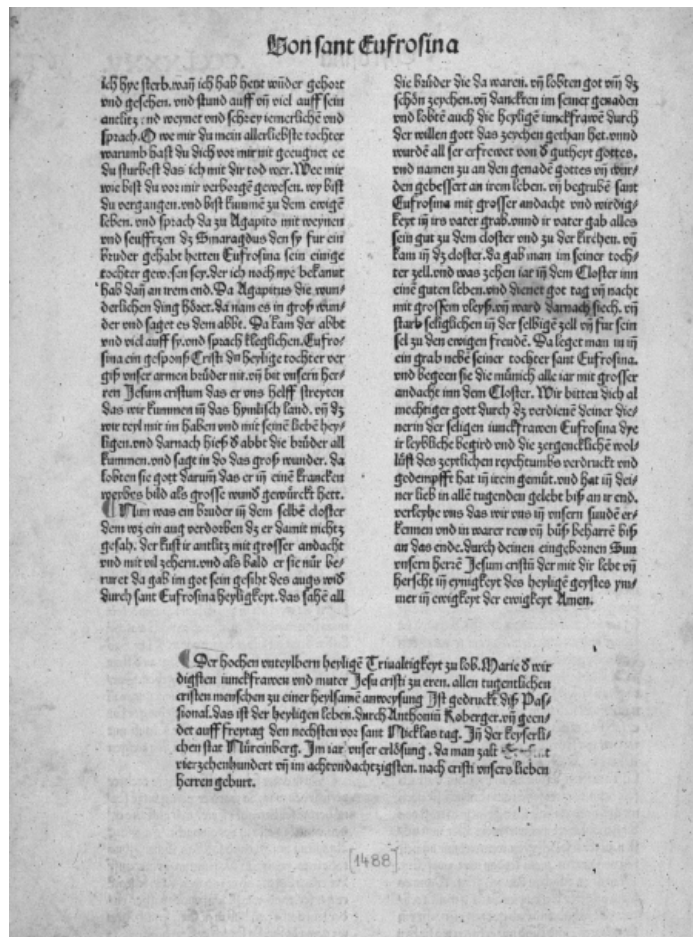 Von sant Eufrosina
ich hye sterb.wañ ich hab heut wũder gehort
vnd gesehen. vnd stund auff vñ viel auff sein
antlitz vnd weynet vnd schrey iemerlichē vnd
sprach. O we mir du mein allerliebste tochter
warumb hast du dich vor mir mit geeugnet ee
du sturbest das ich mit dir tod wer. Wee mir
wie bist du vor mir verborgē gewesen. wy bist
du vergangen. vnd bist kummē zu dem ewigē
leben. vnd sprach da zu Agapito mit weynen
vnd seufftzen dz Smaragdus den sy fur ein
bruder gehabt hetten Eufrosina sein einige
tochter gewesen sey. der ich noch nye bekannt
hab dañ an irem end. Da Agapitus die wun/
derlichen ding höret. da nam es in groß wun/
der vnd saget es dem abbt. Da kam der abbt
vnd viel auff sy. vnd sprach kleglichen. Eufro/
sina ein gesponß Cristi du heylige tochter ver
giß vnser armen brüder nit. vñ bit vnsern her/
ren Jesum cristum das er vns helff streyten
das wir kummen iñ das hymlisch land. vñ dz
wir teyl mit im haben vnd mit seinē liebē hey/
ligen. vnd darnach hieß d abbt die brüder all
kummen. vnd sagt in do das groß wunder. da
lobten sie gott darum̃ das er iñ einē krancken
weybes bild als grosse wund gewürckt hett.
¶ Nun was ein bruder iñ dem selbē closter
dem wz ein aug verdorben dz er damit nichtz
gesah. der kust ir antlitz mit grosser andacht
vnd mit vil zehern. vnd als bald er sie nür be/
ruret da gab im got sein gesiht des augs wid
durch sant Eufrosina heyligkeyt. das sahē all
die brüder die da waren. vñ lobten got vm̃ dz
schön zeychen. vñ danckten im seiner genaden
vnd lobtē auch die heyligē iunckfrawē durch
der willen gott das zeychen gethan het. vnnd
wurdē all ser erfrewet von d gutheyt gottes.
vnd namen zu an den genadē gottes vñ wur/
den gebessert an irem leben. vñ begrubē sant
Eufrosina mit grosser andacht vnd wirdig/
keyt iñ irs vater grab. vnnd ir vater gab alles
sein gut zu dem closter vnd zu der kirchen. vñ
kam iñ dz closter. da gab man im seiner toch/
ter zell. vnd was zehen iar iñ dem Closter inn
einē guten leben. vnd dienet got tag vñ nacht
mit grossem vleyß. vñ ward darnach siech. vñ
starb seliglichen iñ der selbigē zell vñ fur sein
sel zu den ewigen freudē. Da leget man in iñ
ein grab nebē seiner tochter sant Eufrosina.
vnd begeen sie die münich alle iar mit grosser
andacht inn dem Closter. Wir bitten dich al
mechtiger gott durch dz verdienē deiner die/
nerin der seligen iunckfrawen Eufrosina dye
ir leybliche begird vnd die zergencklichē wol/
lüst des zeytlichen reychtumbs verdruckt vnd
gedempfft hat iñ irem gemüt. vnd hat iñ dei/
ner lieb in allē tugenden gelebt biß an ir end.
verleyhe vns das wir vns iñ vnsern sundē er/
kennen vnd in warer rew vñ büß beharrē biß
an das ende. durch deinen eingebornen Sun
vnsern herrē Jesum cristū der mit dir lebt vñ
herscht iñ eynigkeyt des heyligē geystes ym/
mer iñ ewigkeyt der ewigkeyt Amen.
¶ Der hochen vnteylbern heyligē Triualtigkeyt zu lob. Marie d wir
digsten iunckfrawen vnd muter Jesu cristi zu eren. allen tugentlichen
cristen menschen zu einer heylsamē anweysung Ist gedruckt diß Pas/
sional. das ist der heyligen leben. durch Anthoniū Koberger. vñ geen/
det auff freytag den nechsten vor sant Nicklas tag. Iñ der keyserli/
chen stat Nüremberg. Im iar vnser erlösung. da man zalt
vierzehenhundert vñ im achtvndachtzigsten. nach cristi vnsers lieben
herren geburt.
[1488]